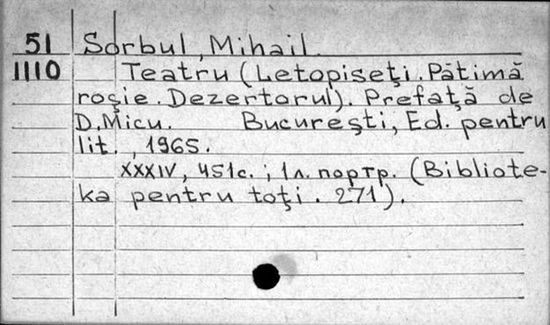 51 Sorbul, Mihail.
1110 Teatru (Letopiseţi. Patimă
roşie. Dezertorul). Prefaţă de
D. Micu. Bucureşti, Ed. pentru
lit., 1965.
XXXIV, 451c.; 1л. портр. (Bibliote-
ka pentru toţi. 271).